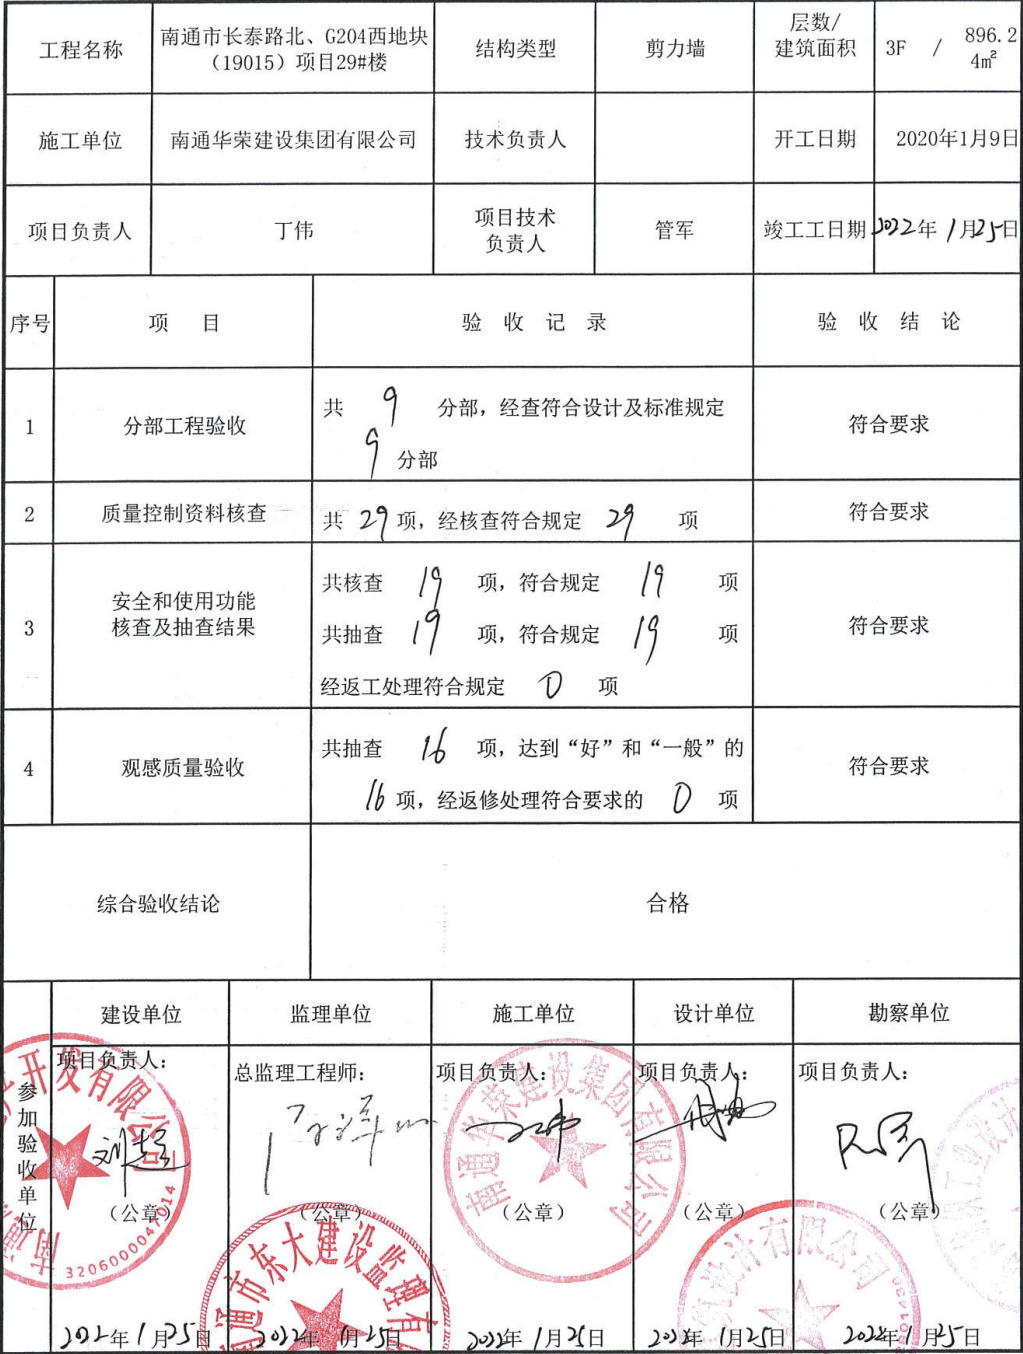 工程名称
南通市长泰路北、G204西地块
（19015）项目29#楼
结构类型
剪力墙
层数/
建筑面积
3F / 896.2
4㎡
施工单位
南通华荣建设集团有限公司
技术负责人
开工日期
2020年1月9日
项目负责人
丁伟
项目技术
负责人
管军
竣工工日期
2022年1月25日
序号
项 目
验 收 记 录
验 收 结 论
1
分部工程验收
共 9 分部，经查符合设计及标准规定
9 分部
符合要求
2
质量控制资料核查
共 29 项，经核查符合规定 29 项
符合要求
3
安全和使用功能
核查及抽查结果
共核查 19 项，符合规定 19 项
共抽查 19 项，符合规定 19 项
经返工处理符合规定 0 项
符合要求
4
观感质量验收
共抽查 16 项，达到“好”和“一般”的
16 项，经返修处理符合要求的 0 项
符合要求
综合验收结论
合格
参加验收单位
建设单位
监理单位
施工单位
设计单位
勘察单位
项目负责人：
总监理工程师：
项目负责人：
项目负责人：
项目负责人：
（公章）
（公章）
（公章）
（公章）
（公章）
2022年1月25日
2022年1月25日
2022年1月25日
2022年1月25日
2022年1月25日
开发有限公司
3206000047014
南通市东大建设监理有
南通华荣建设集团有限公司
设计有限公司